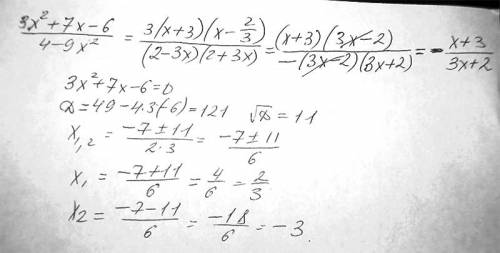 (3x²+7x-6)/(4-9x²) = (3(x+3)(x-2/3))/((2-3x)(2+3x)) = ((x+3)(3x-2))/(-(3x-2)(3x+2)) = -(x+3)/(3x+2)
3x²+7x-6=0
D=49-4·3(-6)=121 √D=11
x₁,₂ = (-7±11)/(2·3) = (-7±11)/6
x₁ = (-7+11)/6 = 4/6 = 2/3
x2 = (-7-11)/6 = -18/6 = -3.